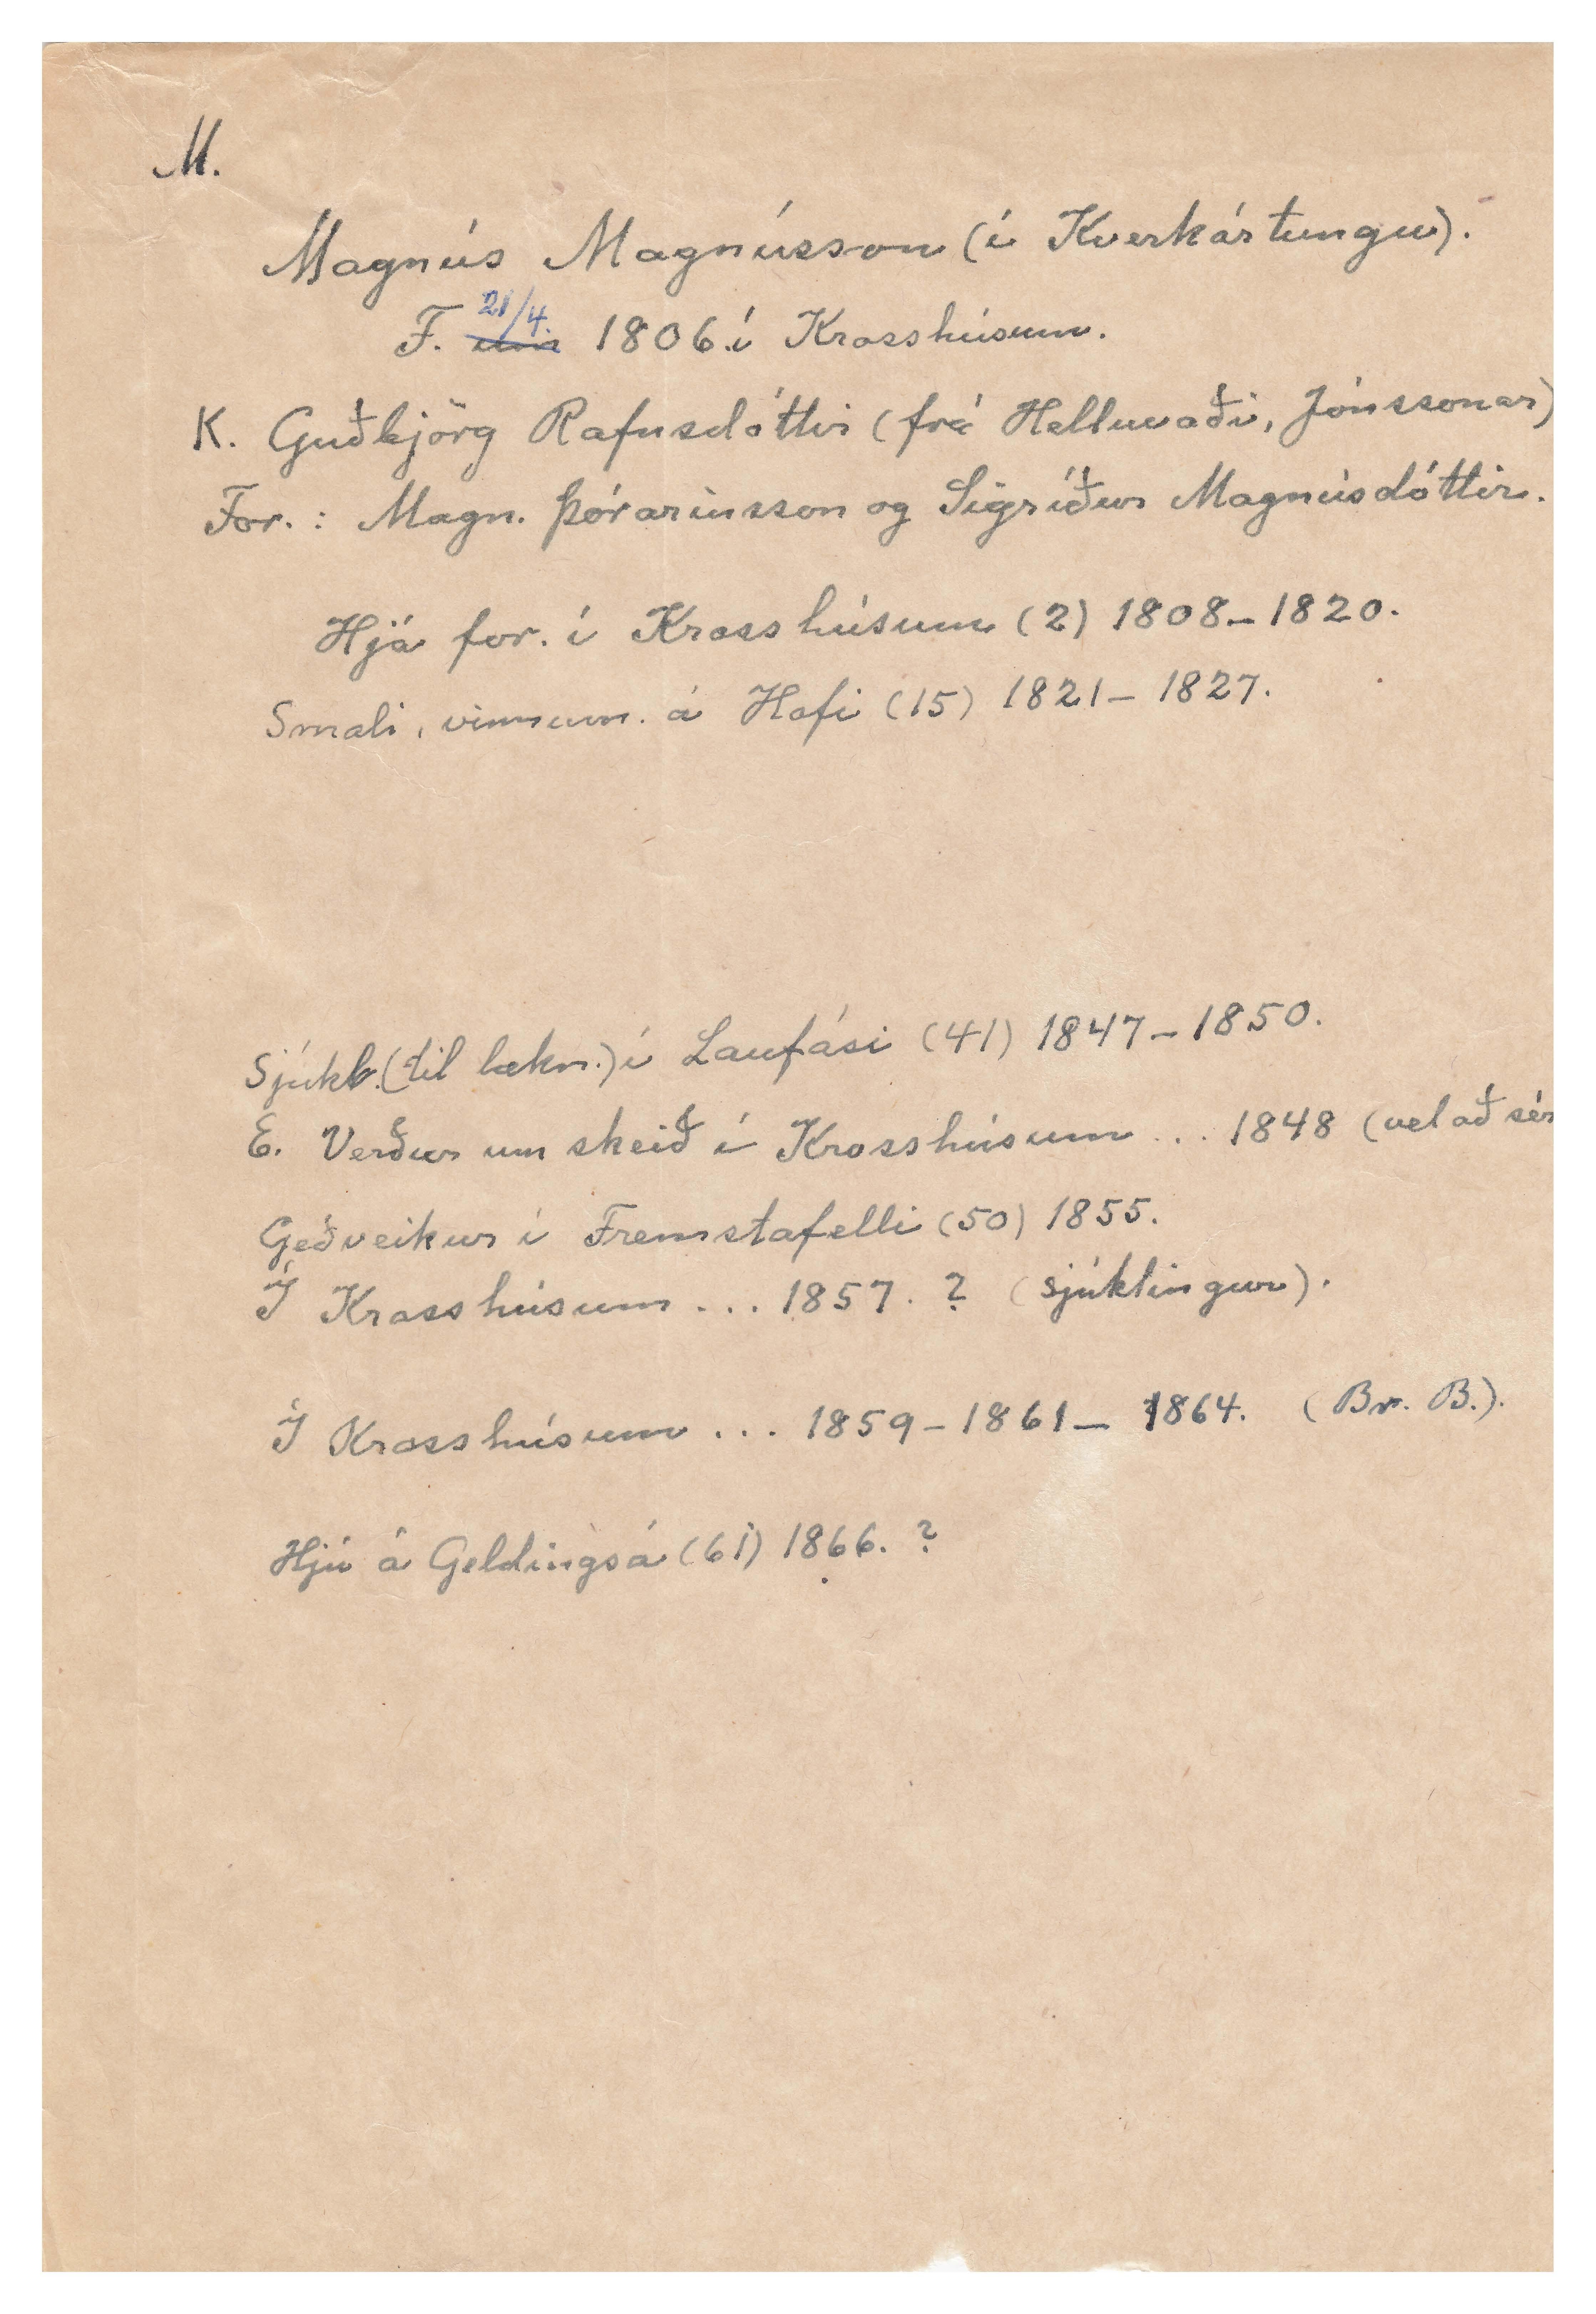 M.
Magnús Magnússon (í Kverkártungu).
F. 21/4. um 1806 í Krosshúsum.
K. Guðbjörg Rafnsdóttir (frá Helluvaði, Jónssonar)
For. : Magn. Þórarinsson og Sigríður Magnúsdóttir.
Hjá for. í Krosshúsum (2) 1808–1820.
Smali, vinnum. á Hofi (15) 1821–1827.
Sjúkl. (til lækn.) í Laufási (41) 1847–1850.
E. Verður um skeið í Krosshúsum ... 1848 (vel að sér
Geðveikur í Fremstafelli (50) 1855.
Í Krosshúsum ... 1857. ? (sjúklingur).
Í Krosshúsum ... 1859–1861– 1864. (Br. B.).
Hjú á Geldingsá (61) 1866. ?